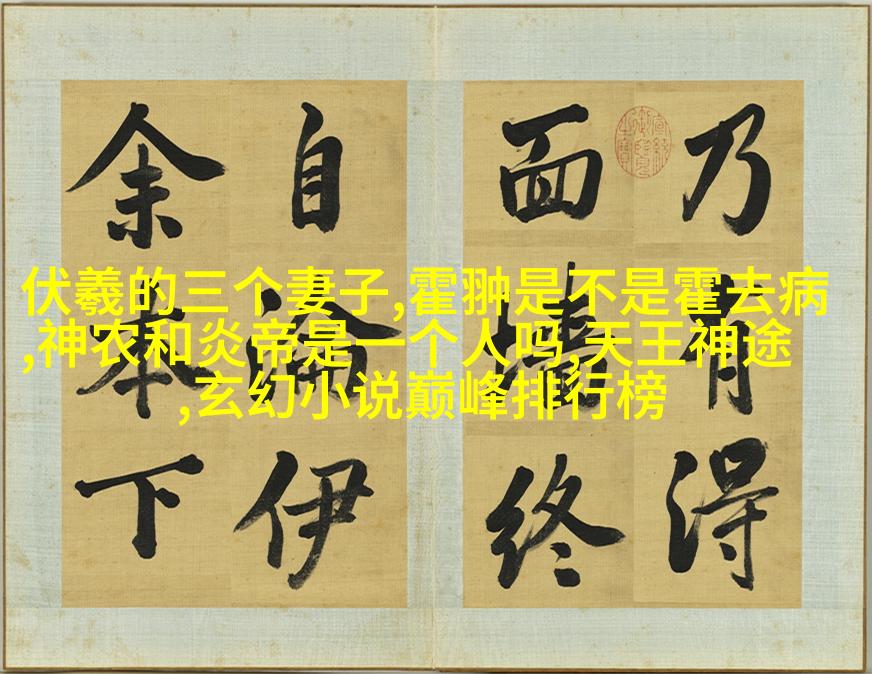 伏羲的三个妻子,霍翀是不是霍去病
,神农和炎帝是一个人吗,天王神途
,玄幻小说巅峰排行榜
乃有得
面墻終
自淪伊
余本下